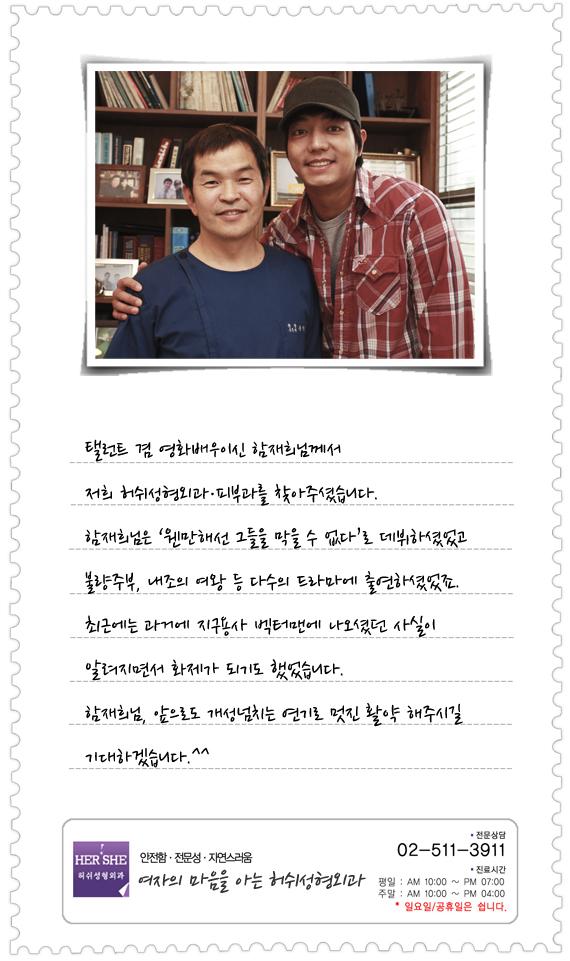 탤런트 겸 영화배우이신 함재희님께서
저희 허쉬성형외과·피부과를 찾아주셨습니다.
함재희님은 '웬만해선 그들을 막을 수 없다'로 데뷔하셨었고
불량주부, 내조의 여왕 등 다수의 드라마에 출연하셨었죠.
최근에는 과거에 지구용사 벡터맨에 나오셨던 사실이
알려지면서 화제가 되기도 했었습니다.
함재희님, 앞으로도 개성넘치는 연기로 멋진 활약 해주시길
기대하겠습니다.^^
HER SHE
허쉬성형외과
안전함 · 전문성 · 자연스러움
여자의 마음을 아는 허쉬성형외과
▪ 전문상담
02-511-3911
▪ 진료시간
평일 : AM 10:00 ~ PM 07:00
주말 : AM 10:00 ~ PM 04:00
* 일요일/공휴일은 쉽니다.